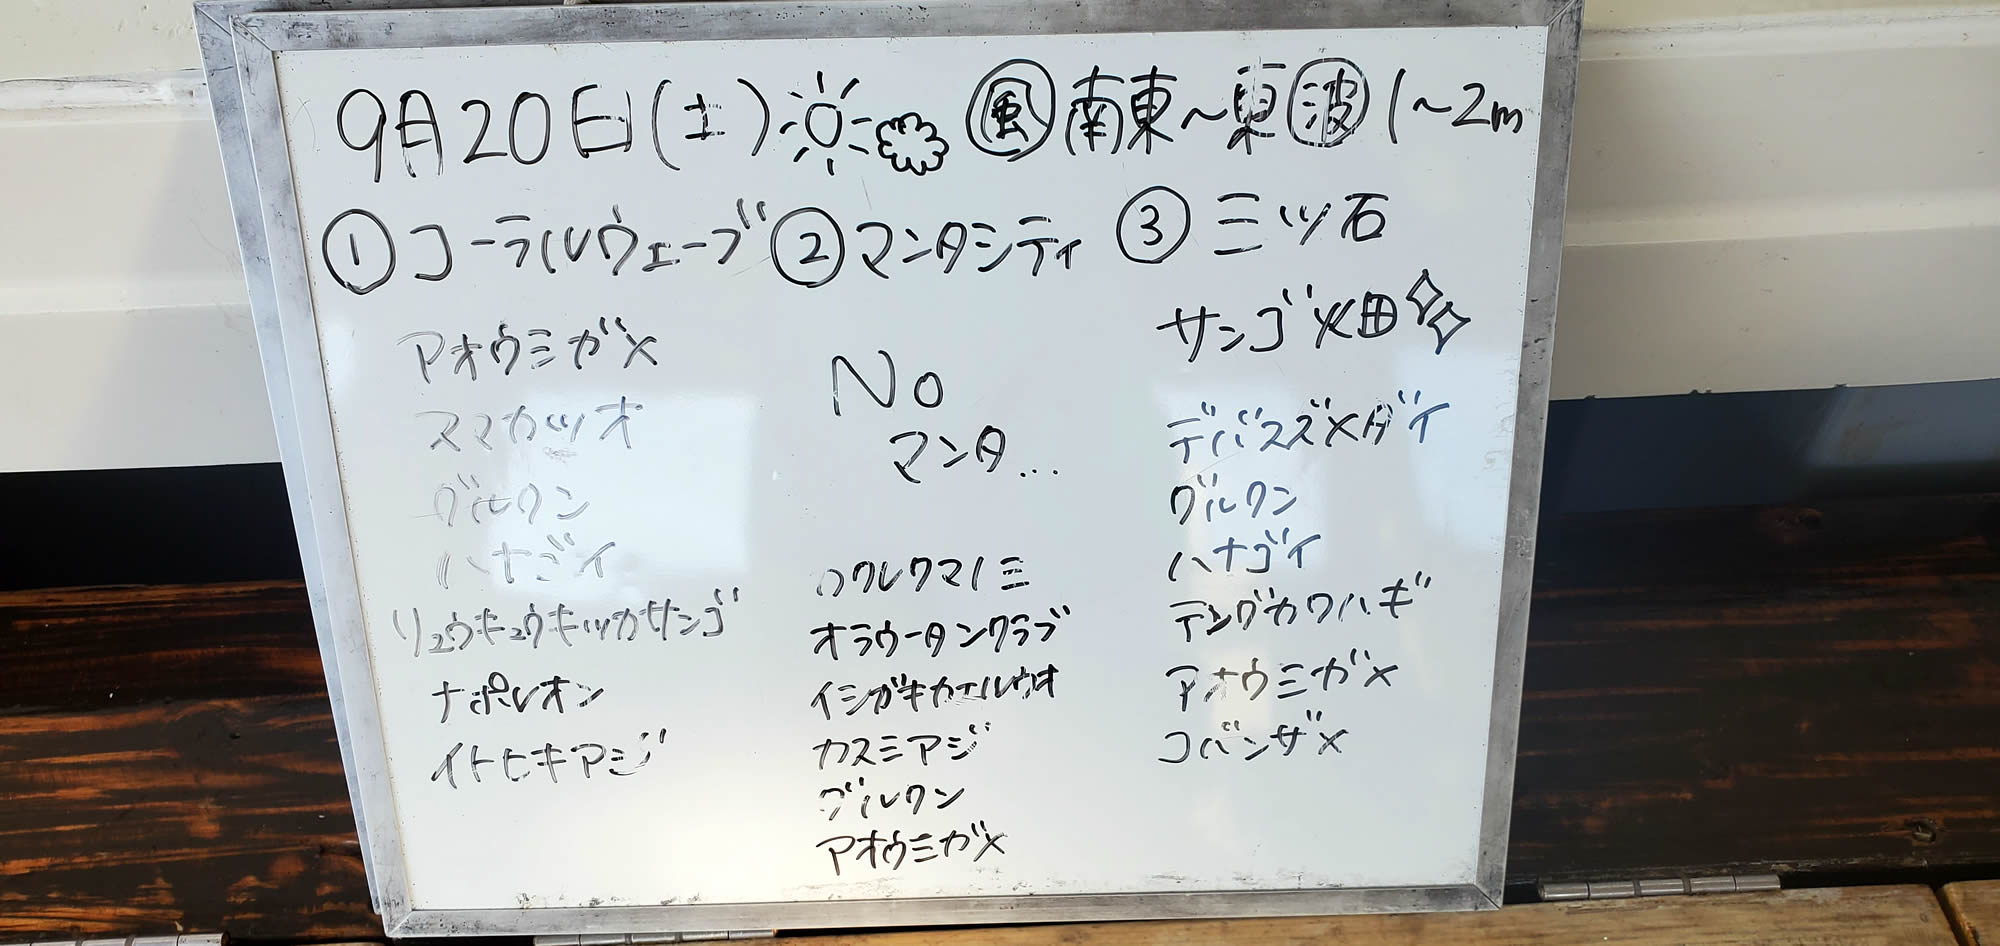 9月20日(土) 風 南東～東 波 1～2m
① コーラルウェーブ ② マンタシティ ③ 三ツ石
アオウミガメ
スマカツオ
グルクン
ハナゴイ
リュウキュウキッカサンゴ
ナポレオン
イトヒキアジ
No
マンタ...
ハクレクマノミ
オラウータンクラブ
イシガキカエルウオ
カスミアジ
グルクン
アオウミガメ
サンゴ畑
デバスズメダイ
グルクン
ハナゴイ
テングカワハギ
アオウミガメ
コバンザメ